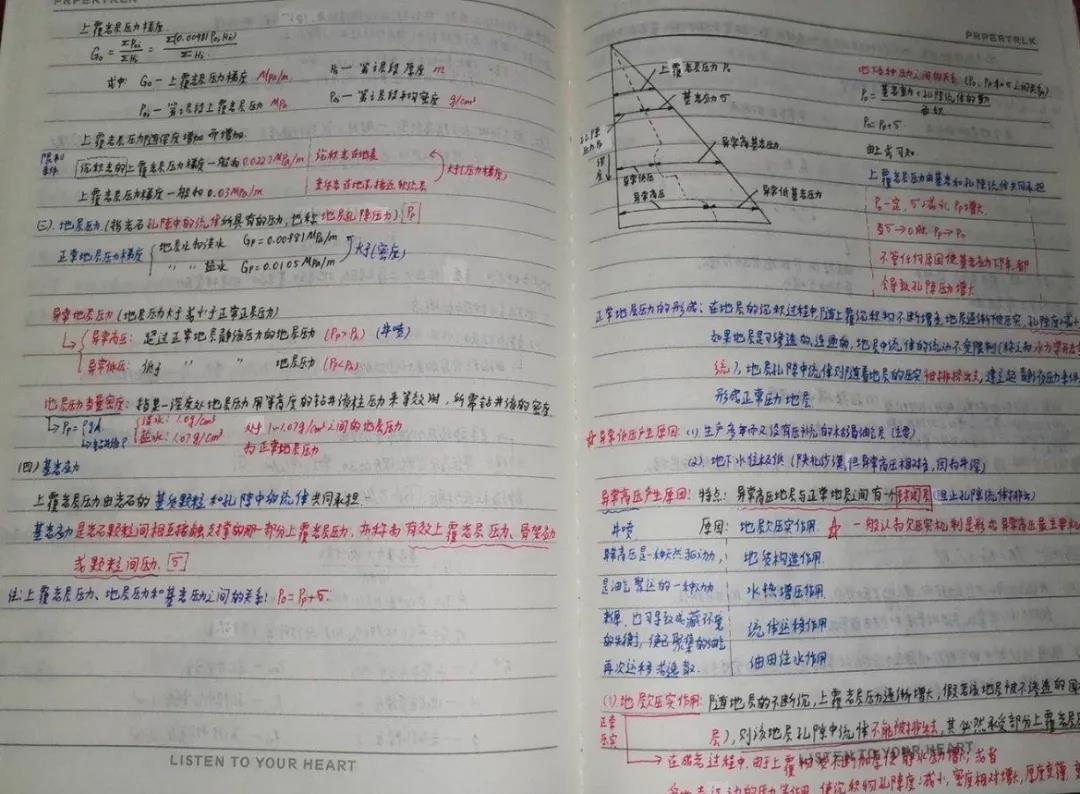 PAPERTALK
上覆岩层压力梯度
G₀ = ΣP₀ᵢ/ΣHᵢ = Σ(0.00981 ρ₀ᵢ Hᵢ)/ΣHᵢ
式中: G₀ — 上覆岩层压力梯度 MPa/m  Hᵢ — 第i层段厚度 m
P₀ᵢ — 第i层段上覆岩层压力 MPa  ρ₀ᵢ — 第i层段平均密度 g/cm³
上覆岩层压力随深度增加而增加.
沉积岩的上覆岩层压力梯度一般为0.0227MPa/m
上覆岩层压力梯度一般约0.03MPa/m
大于(压力梯度)
(三). 地层压力 (指岩石孔隙中的流体所具有的压力, 也称地层孔隙压力) Pₚ
正常地层压力梯度 地层水为淡水 Gₚ=0.00981MPa/m
〃 〃 盐水 Gₚ=0.0105MPa/m
大于(密度)
异常地层压力 (地层压力大于或小于正常压力)
异常高压: 超过正常地层静液压力的地层压力 (Pₚ>Pₕ) (井喷)
异常低压: 低于 〃 〃 地层压力 (Pₚ<Pₕ)
地层压力当量密度: 指某一深度处地层压力用等高度的钻井液柱压力来等效时, 所需钻井液的密度
淡水: 1.0g/cm³
盐水: 1.07g/cm³
对于1~1.07g/cm³之间的地层压力
为正常地层压力
(四) 基岩应力
上覆岩层压力由岩石的基岩颗粒和孔隙中的流体共同承担.
基岩应力是岩石颗粒间相互接触支撑的那一部分上覆岩层压力, 亦称为有效上覆岩层压力、骨架应力
或颗粒间压力. σ
注: 上覆岩层压力、地层压力和基岩应力之间的关系: P₀=Pₚ+σ.
LISTEN TO YOUR HEART
PAPERTALK
上覆岩层压力 P₀
基岩应力 σ
异常高基岩应力
异常低压
异常高压
异常低基岩应力
深度
地下各种压力之间的关系 (P₀、Pₚ和σ之间关系)
面积
P₀=Pₚ+σ
由上式可知.
上覆岩层压力由基岩和孔隙流体共同承担
P₀一定, σ↓减小 Pₚ增大
当σ→0时, Pₚ→P₀
不管任何原因使基岩应力降, 都
会导致孔隙压力增大
正常地层压力的形成: 在地层的沉积过程中, 随上覆沉积物不断增多, 地层逐渐被压实, 孔隙度减小
如果地层是可渗透的、连通的, 地层中流体的流动不受限制(称之为水力学开
统), 地层孔隙中流体则随着地层的压实被排挤出去, 建立起静液压力条件
形成正常压力地层.
异常低压产生原因: (1) 生产多年而又没有压力补充的枯竭油气层 (主要)
(2). 地下水位极低
异常高压产生原因: 特点: 异常高压地层与正常地层之间有一个封闭层 (阻止孔隙流体排出)
井喷 原因: 地层欠压实作用 ☆ 一般认为欠压实机制是形成异常高压最主要
异常高压是一种天然驱动力, 地质构造作用
是油气聚运的一种动力 水热增压作用
流体运移作用
的失稳, 使已聚集的油气 油田注水作用
再次运移或逸散.
(1). 地层欠压实作用: 随地层的不断沉, 上覆岩层压力逐渐增大, 假若该地层被不渗透的
层), 则该地层孔隙中流体不能被排出去, 其必然承受部分上覆岩层
正常压实
在成岩过程中, 由于上覆
LISTEN TO YOUR HEART